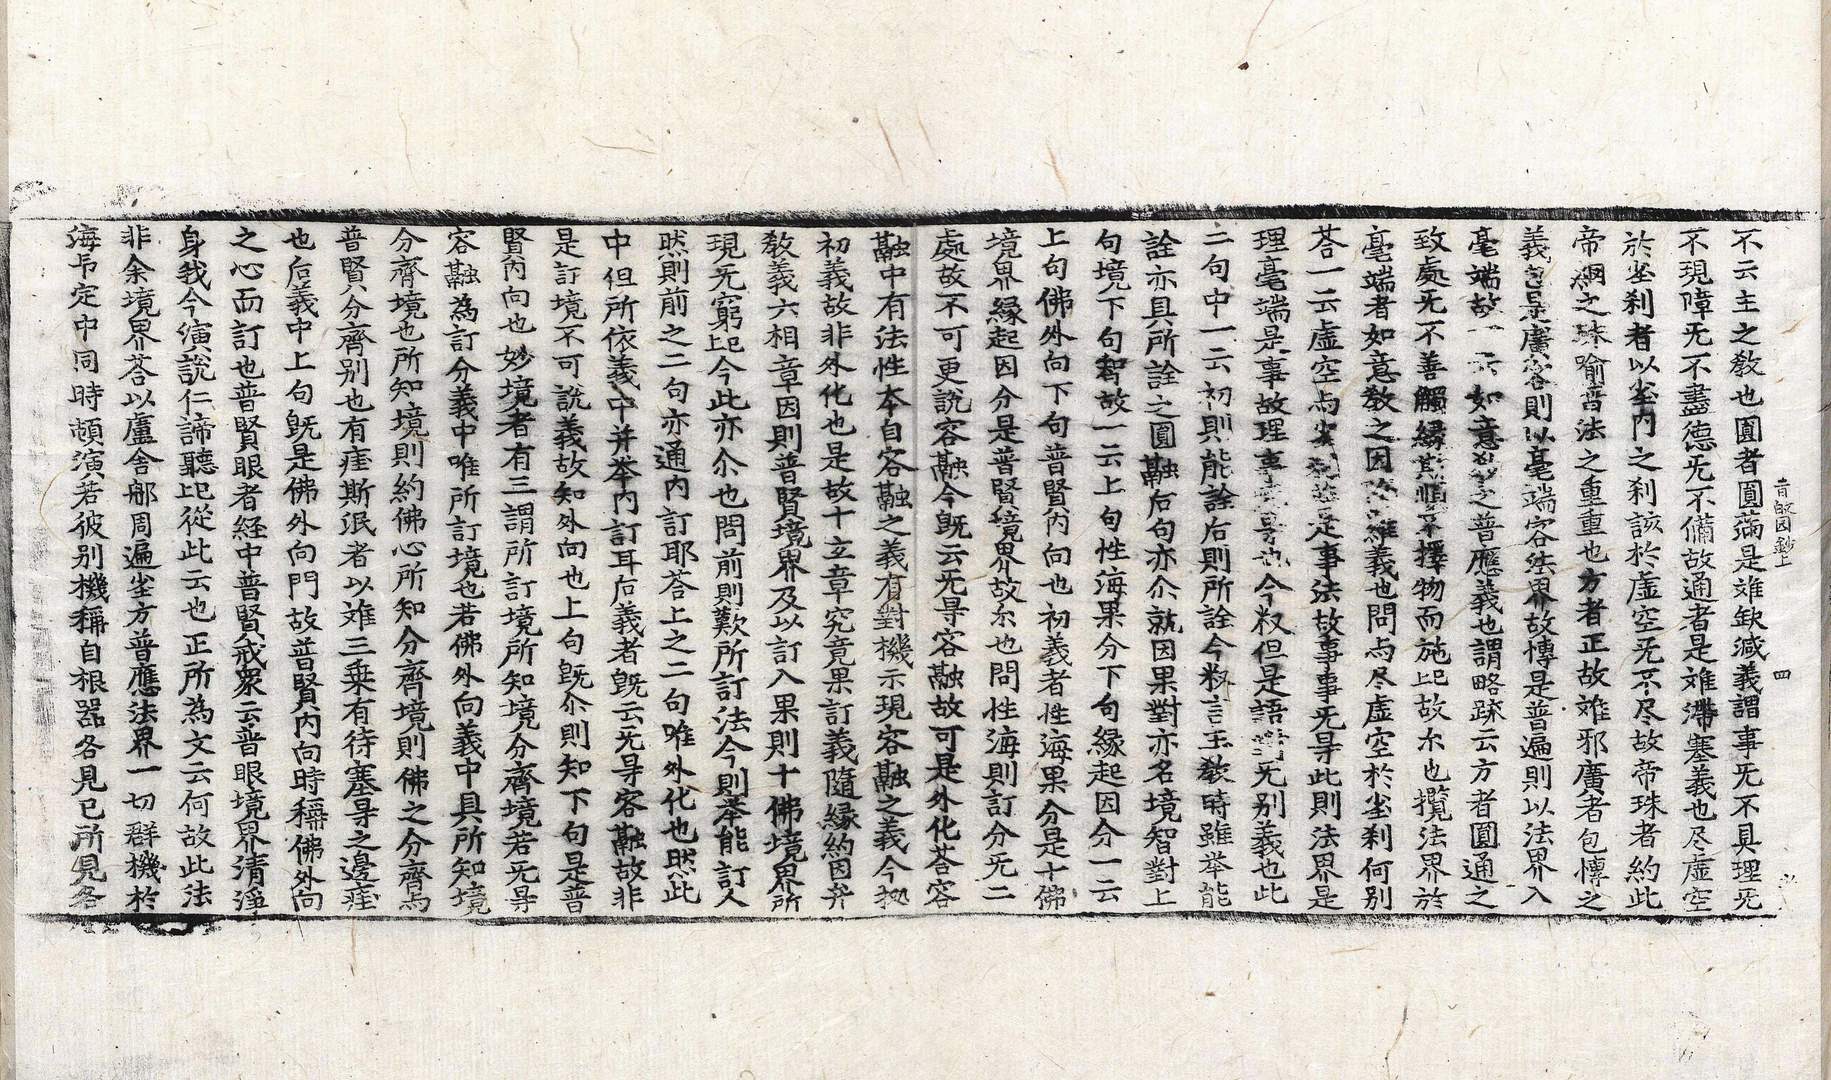 不云主之敎也圓者圓滿是難缺減義謂事无不具理无
不現障无不盡德无不備故通者是难滯塞義也尽虛空
於坐刹者以坐內之刹該於虛空无不尽故帝珠者約此
帝網之珠喻普法之重重也方者正故难邪廣者包愽之
義 是廣容則以毫端容法界故愽是普遍則以法界入
毫端故一云如意 之普應義也謂略跡云方者圓通之
致處无不善觸縁斯順不擇物而施𢀳故尒也攬法界於
毫端者如意敎之因 难義也問与尽虛空於坐刹何别
荅一云虛空与坐 是事法故事事无㝵此則法界是
理毫端是事故理事 㝵也今权但是語 无别義也此
二句中一云初則能詮后則所詮今释言主敎時雖举能
詮亦具所詮之圓融后句亦尒就因果對亦名境智對上
句境下句智故一云上句性海果分下句縁起因分一云
上句佛外向下句普賢內向也初義者性海果分是十佛
境界縁起因分是普賢境界故尒也問性海則訂分无二
處故不可更說容融今旣云无㝵容融故可是外化荅容
融中有法性本自容融之義有對機示現容融之義今抝
初義故非外化也是故十立章究竟果訂義隨縁約因弁
敎義六相章因則普賢境界及以訂入果則十佛境界所
現无窮𢀳今此亦尒也問前則歎所訂法今則举能訂人
㷊則前之二句亦通內訂耶荅上之二句唯外化也㷊此
中但所依義中并举內訂耳后義者旣云无㝵容融故非
是訂境不可說義故知外向也上句旣尒則知下句是普
賢內向也妙境者有三謂所訂境所知境分齊境若无㝵
容融為訂分義中唯所訂境也若佛外向義中具所知境
分齊境也所知境則約佛心所知分齊境則佛之分齊与
普賢分齊别也有痓斯泯者以难三乗有待塞㝵之邊痓
也后義中上句旣是佛外向門故普賢內向時稱佛外向
之心而訂也普賢眼者経中普賢戒衆云普眼境界清淨
身我今演說仁諦聽𢀳從此云也正所為文云何故此法
非余境界荅以盧舍郍周遍坐方普應法界一切群機於
海𠃏定中同時頓演若彼别機稱自根器各見已所見各